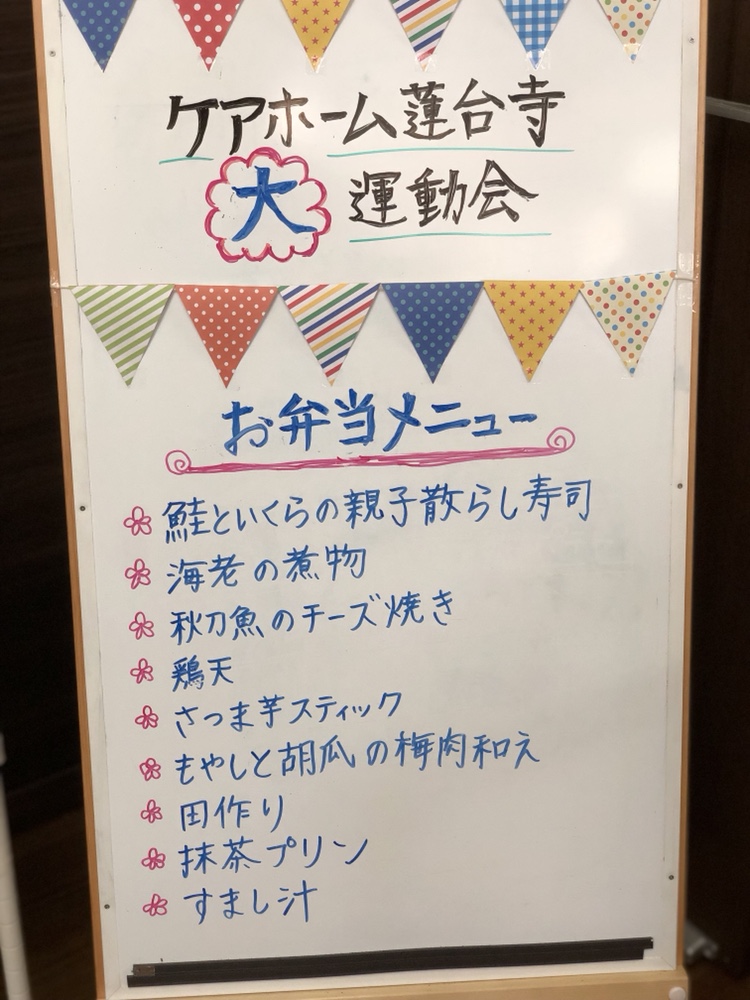 ケアホーム蓮台寺
大運動会
お弁当メニュー
鮭といくらの親子散らし寿司
海老の煮物
秋刀魚のチーズ焼き
鶏天
さつま芋スティック
もやしと胡瓜の梅肉和え
田作り
抹茶プリン
すまし汁